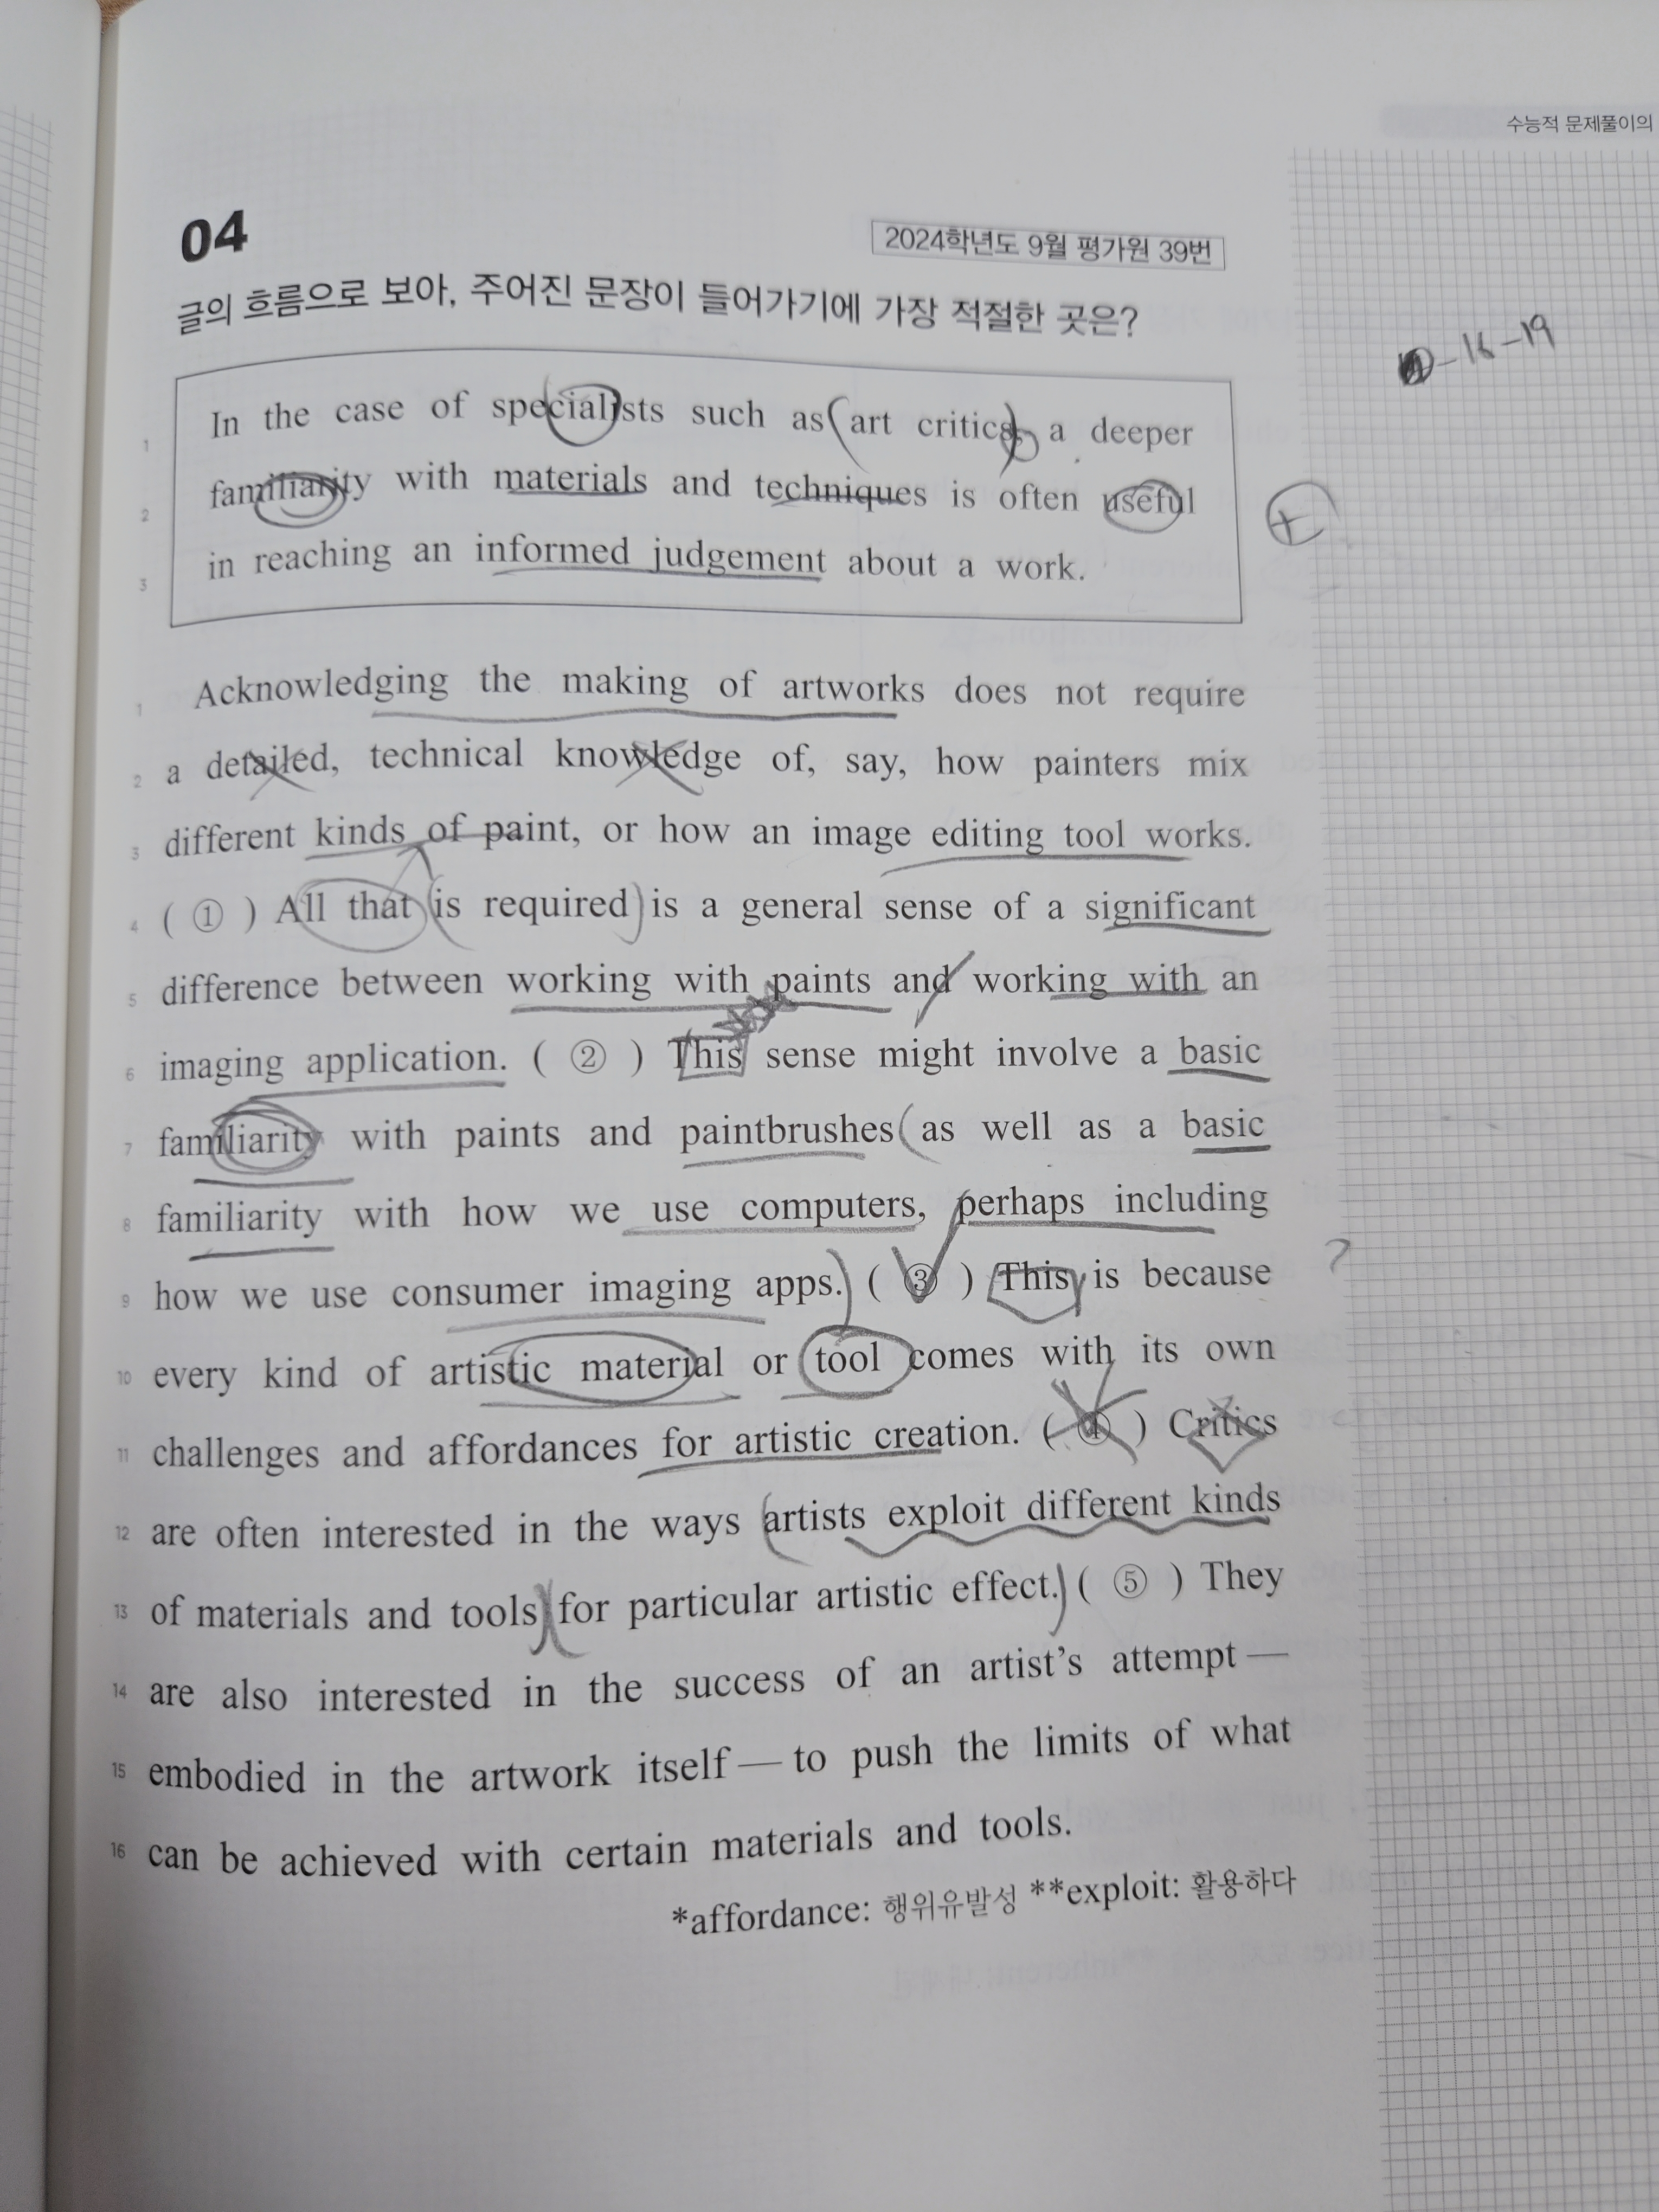 수능적 문제풀이의
04
2024학년도 9월 평가원 39번
글의 흐름으로 보아, 주어진 문장이 들어가기에 가장 적절한 곳은?
-16-19
1 In the case of specialists such as art critics, a deeper
2 familiarity with materials and techniques is often useful
3 in reaching an informed judgement about a work.
+
1 Acknowledging the making of artworks does not require
2 a detailed, technical knowledge of, say, how painters mix
3 different kinds of paint, or how an image editing tool works.
4 ( ① ) All that is required is a general sense of a significant
5 difference between working with paints and working with an
6 imaging application. ( ② ) This sense might involve a basic
7 familiarity with paints and paintbrushes as well as a basic
8 familiarity with how we use computers, perhaps including
9 how we use consumer imaging apps. ( ③ ) This is because
?
10 every kind of artistic material or tool comes with its own
11 challenges and affordances for artistic creation. ( ④ ) Critics
12 are often interested in the ways artists exploit different kinds
13 of materials and tools for particular artistic effect. ( ⑤ ) They
14 are also interested in the success of an artist's attempt —
15 embodied in the artwork itself — to push the limits of what
16 can be achieved with certain materials and tools.
*affordance: 행위유발성 **exploit: 활용하다